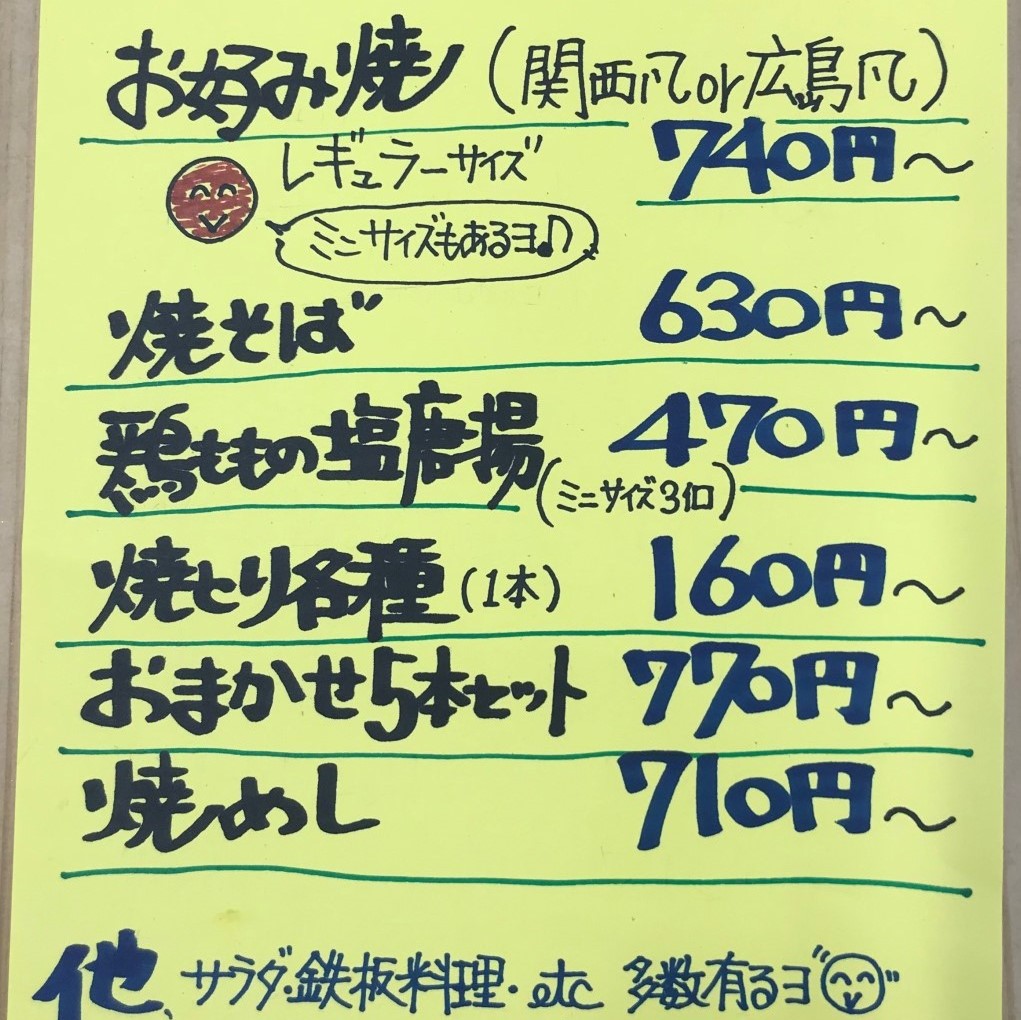 お好み焼 (関西風or広島風)
レギュラーサイズ 740円~
ミニサイズもあるヨ♪
焼そば 630円~
鶏ももの塩唐揚 470円~
(ミニサイズ3個)
焼とり各種 (1本) 160円~
おまかせ5本セット 770円~
焼めし 710円~
他、サラダ・鉄板料理・etc 多数有るヨ